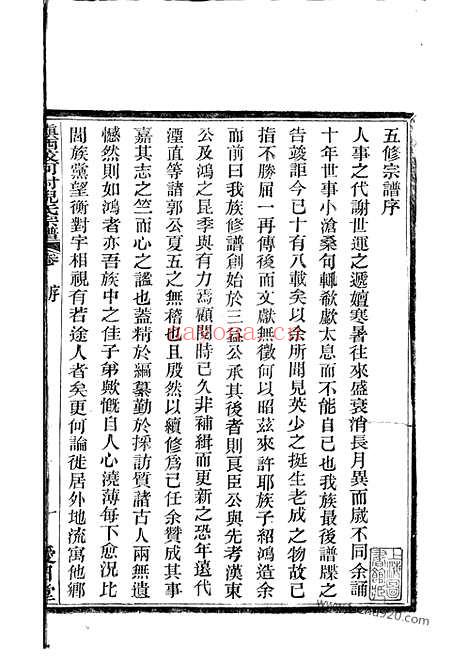 五修宗譜序
人事之代謝世運之遞嬗寒暑往來盛衰消長月異而歲不同余誦
十年世事小滄桑句輒欷歔太息而不能自已也我族最後譜牒之
告竣距今已十有八載矣以余所聞見英少之挺生老成之物故已
指不勝屈一再傳後而文獻無徵何以昭茲來許耶族子紹鴻造余
而前曰我族修譜創始於三益公承其後者則良臣公與先考漢東
公及鴻之昆季與有力焉顧閱時已久非補緝而更新之恐年遠代
湮直等諸郭公夏五之無稽也且殷然以續修爲己任余贊成其事
嘉其志之竺而心之謐也蓋精於編纂勤於採訪質諸古人兩無遺
憾然則如鴻者亦吾族中之佳子弟歟慨自人心澆薄每下愈況比
閭族黨望衡對宇相視有若途人者矣更何論徙居外地流寓他鄉
村兒氏宗譜
卷
序
一
堂
nayona.cn